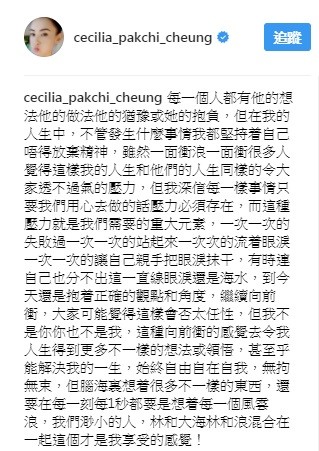 cecilia_pakchi_cheung
追蹤
cecilia_pakchi_cheung 每一個人都有他的想
法他的做法他的猶豫或她的抱負，但在我的
人生中，不管發生什麼事情我都堅持着自己
唔得放棄精神，雖然一面衝浪一面衝很多人
覺得這樣我的人生和他們的人生同樣的令大
家透不過氣的壓力，但我深信每一樣事情只
要我們用心去做的話壓力必須存在，而這種
壓力就是我們需要的重大元素，一次一次的
失敗過一次一次的站起來一次次的流着眼淚
一次一次的讓自己親手把眼淚抹干，有時連
自己也分不出這一直線眼淚還是海水，到今
天還是抱着正確的觀點和角度，繼續向前
衝，大家可能覺得這樣會否太任性，但我不
是你你也不是我，這種向前衝的感覺去令我
人生得到更多不一樣的想法或領悟，甚至乎
能解決我的一生，始終自由自在自我，無拘
無束，但腦海裏想着很多不一樣的東西，還
要在每一刻每1秒都要是想着每一個風雲
浪，我們渺小的人，林和大海林和浪混合在
一起這個才是我享受的感覺！